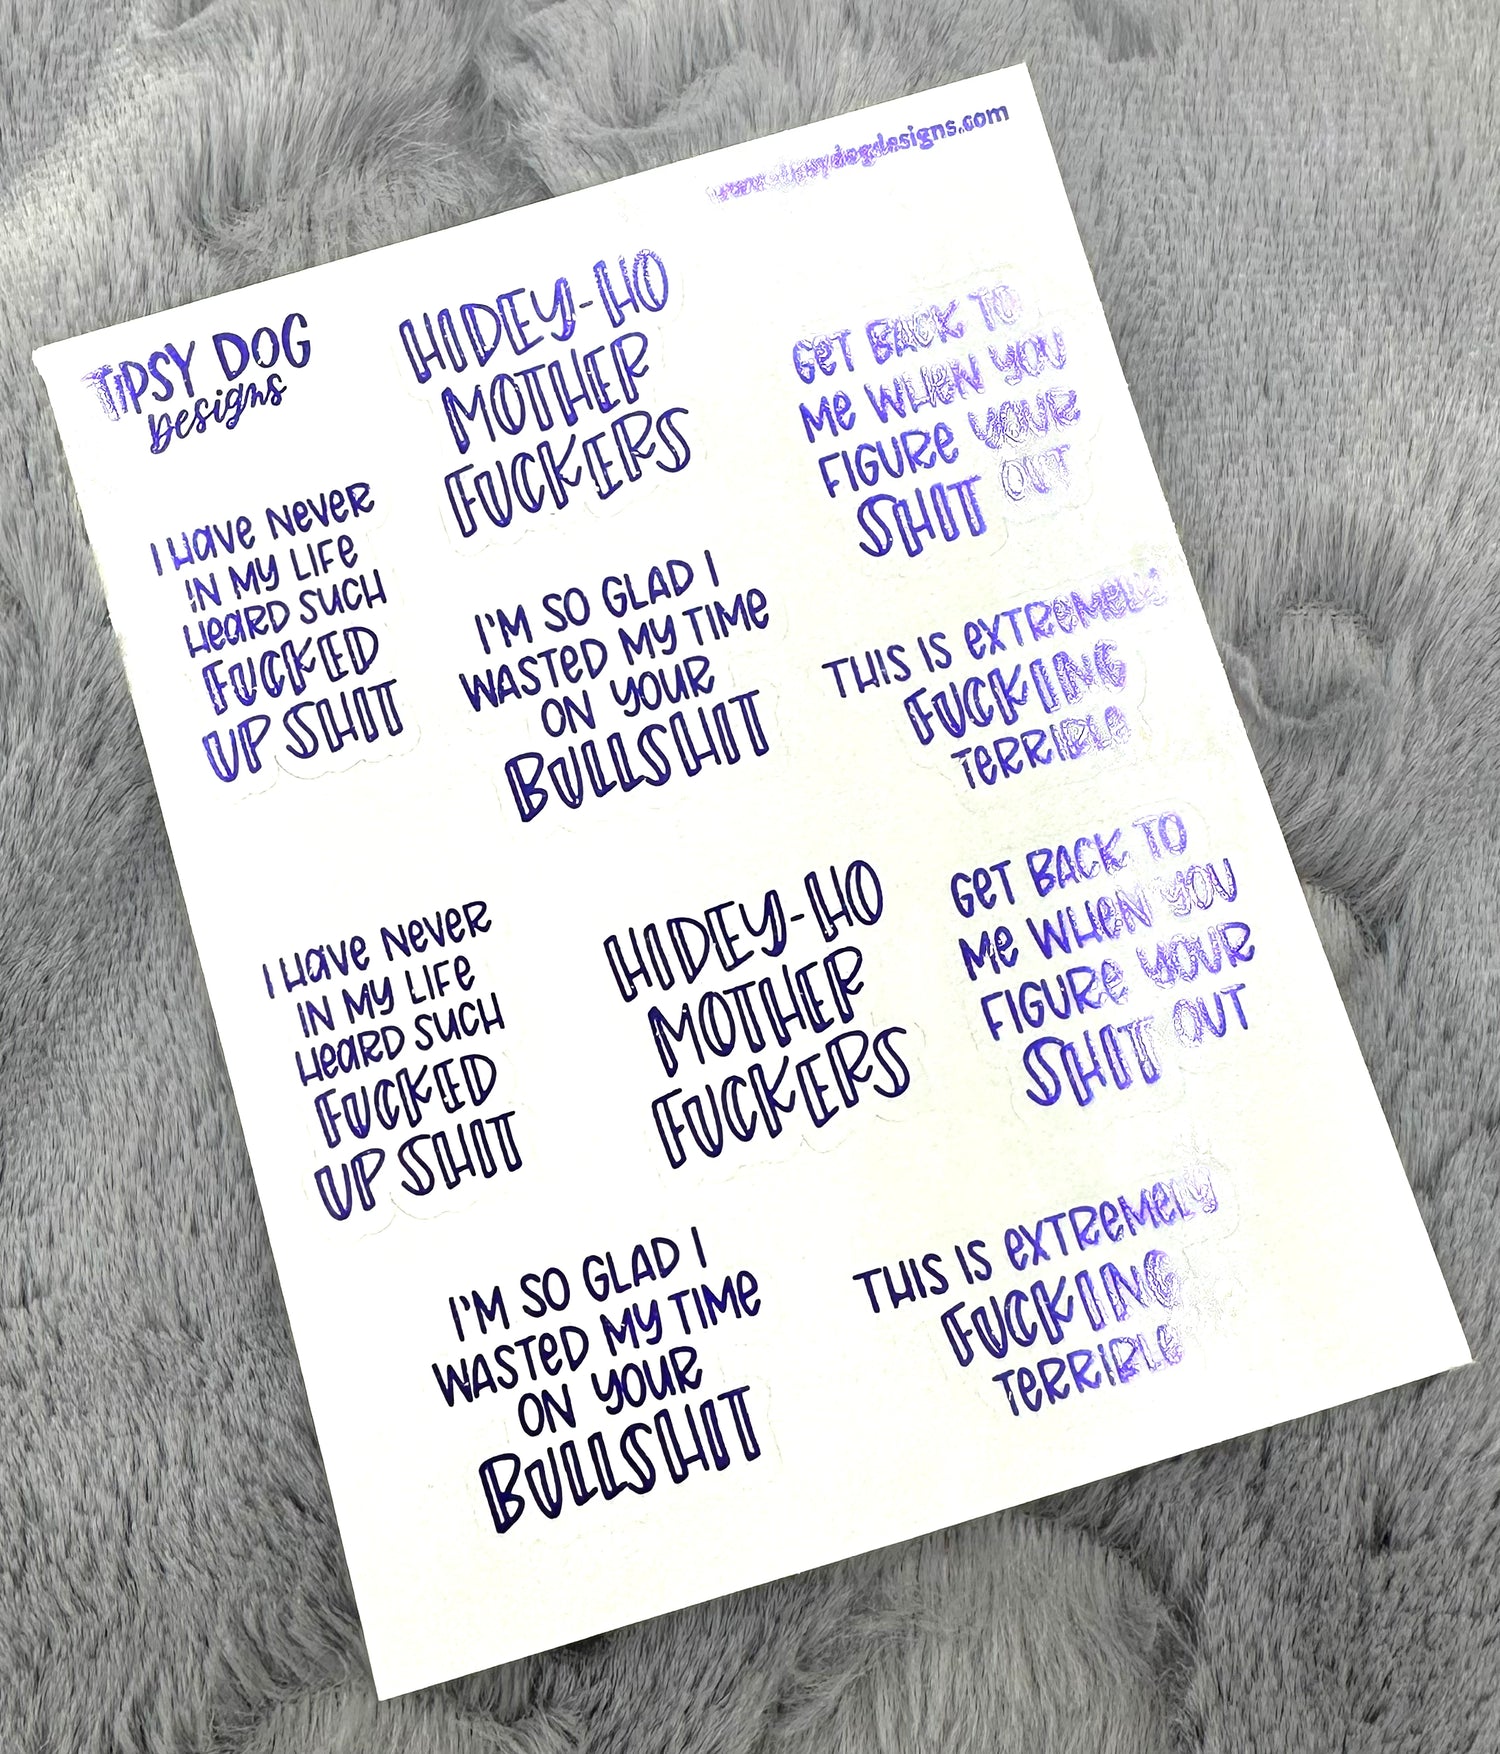 www.tipsydogdesigns.com
TIPSY DOG
Designs
HIDEY-HO
MOTHER
FUCKERS
GET BACK TO
ME WHEN YOU
FIGURE YOUR
SHIT OUT
I HAVE NEVER
IN MY LIFE
HEARD SUCH
FUCKED
UP SHIT
I'M SO GLAD I
WASTED MY TIME
ON YOUR
BULLSHIT
THIS IS EXTREMELY
FUCKING
TERRIBLE
I HAVE NEVER
IN MY LIFE
HEARD SUCH
FUCKED
UP SHIT
HIDEY-HO
MOTHER
FUCKERS
GET BACK TO
ME WHEN YOU
FIGURE YOUR
SHIT OUT
I'M SO GLAD I
WASTED MY TIME
ON YOUR
BULLSHIT
THIS IS EXTREMELY
FUCKING
TERRIBLE